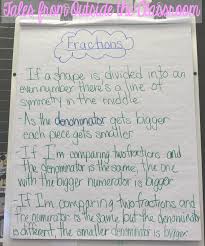 Tales from Outside the Classroom
Fractions
- If a shape is divided into an
even number there's a line of
symmetry in the middle
- As the denominator gets bigger
each piece gets smaller
- If I'm comparing two fractions and
the denominator is the same, the one
with the bigger numerator is bigger
- If I'm comparing two fractions and
the numerator is the same but the denominator
is different, the smaller denominator is bigger.